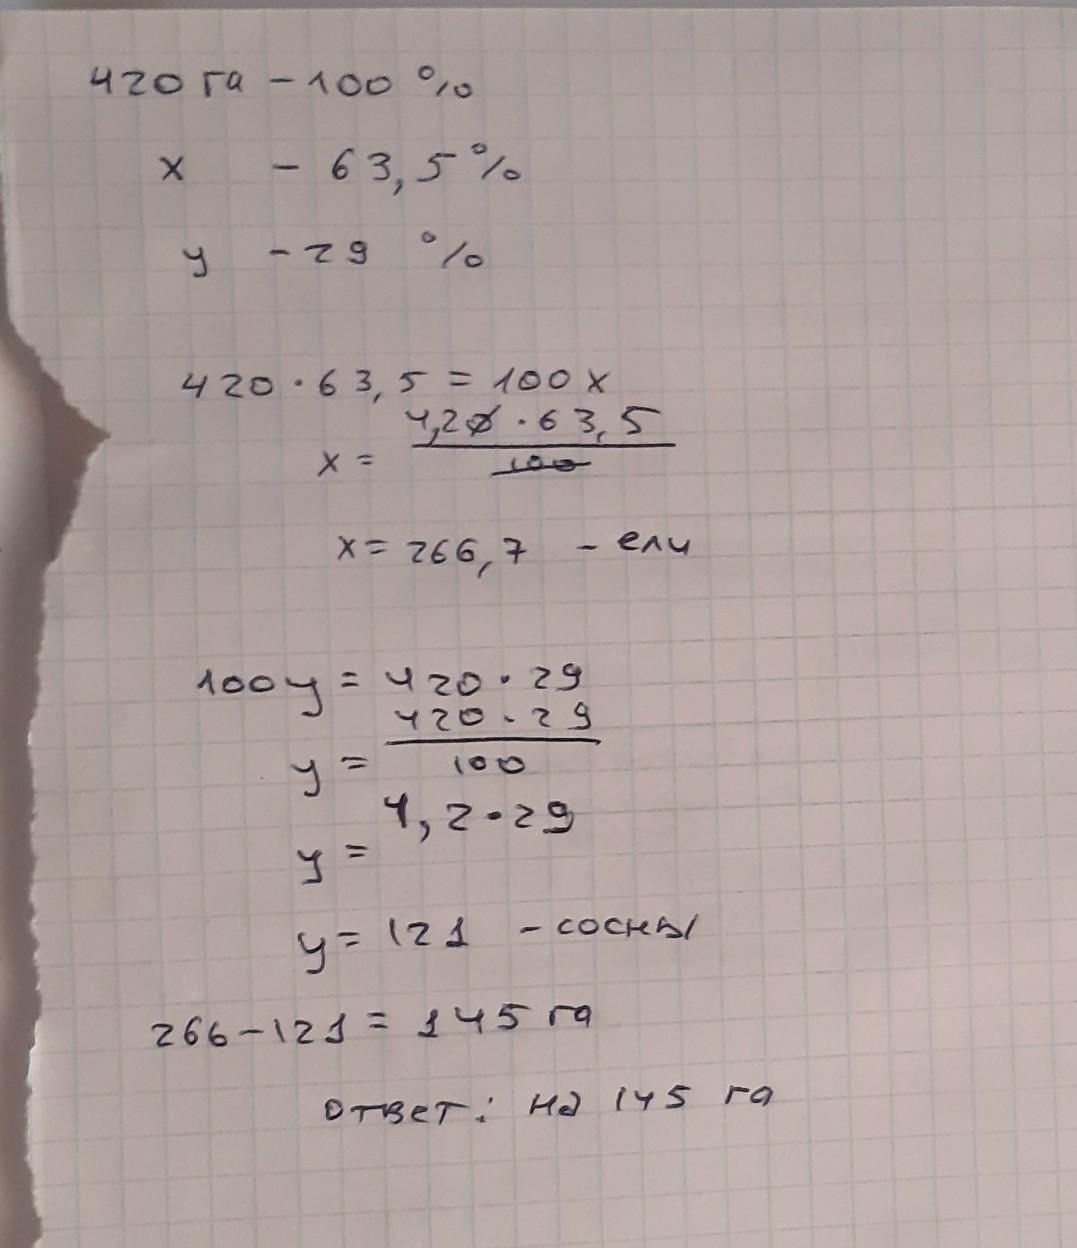 420 га - 100 %
x - 63,5 %
y - 29 %
420 · 63,5 = 100 x
4,20 · 63,5
x = 100
x = 266,7 - ели
100y = 420 · 29
420 · 29
y = 100
4,2 · 29
y =
y = 121 - сосны
266 - 121 = 145 га
Ответ: на 145 га